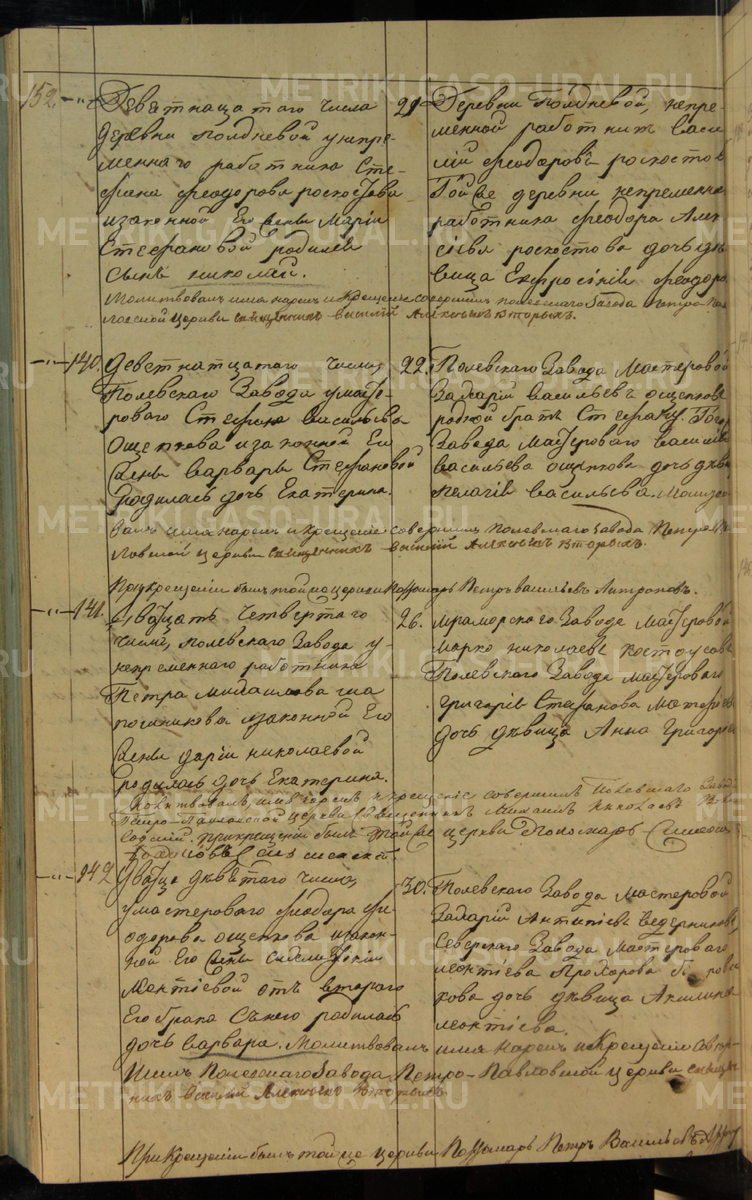 152
Деветнацатаго числа
деревни Полдневой у непре-
меннаго работника Сте-
фана Феодорова Роскостова
и законной Его жены Марiи
Стефановой родился
сынъ Николай.
21
Деревни Полдневой, непре-
менной работникъ Васи-
лiй Феодоровъ Роскостов
Той же деревни непременна
работника Феодора Алек
сiева Роскостова дочь дѣ
вица Ефросинiя Феодоро
Молитвовалъ имя нарекъ и Крещенiе совершилъ Полевскаго Завода Петро-Пав
ловской Церкви священникъ Василiй Алексѣевъ Вторыхъ.
140.
Деветнатцатаго числа
Полевскаго Завода у масте-
роваго Стефана Васильева
Ощепкова и законной Его
жены Варвары Стефановой
родилась дочь Екатерина.
22.
Полевскаго Завода Мастеровой
Захарiй Васильевъ Ощепковъ
родной братъ Стефану. Того
Завода Мастероваго Василья
Васильева Ощепкова дочь дѣв
Пелагiя Васильева. Молитво
валъ имя нарекъ и крещенiе совершилъ Полевскаго Завода Петро-Па
вловской церкви священникъ Василiй Алексѣевъ Вторыхъ.
При крещенiи былъ той же церкви Пономарь Петръ Васильевъ
141.
Двацать четвертаго
числа, Полевскаго Завода у
непременнаго работника
Петра Михайлова
и законной Его
жены Дарiи Николаевой
родилась дочь Екатерина.
26.
Мраморскаго Завода Мастеровой
Марко Николаевъ Костоусовъ
Полевскаго Завода Мастероваго
Григорiя Стефанова
дочь дѣвица Анна Григорье
Молитвовалъ, имя нарекъ и крещенiе совершилъ Полевскаго Завода
Петро-Павловской Церкви Священникъ Михаилъ Николаевъ
При крещенiи былъ той же церкви Пономарь
142
Дватца дѣвятаго числа
у мастероваго Феодора Фе-
одорова Ощепкова и закон-
ной Его жены
Леонтiевой отъ втораго
Его брака съ него родилась
дочь Варвара. Молитвовалъ
30.
Полевскаго Завода Мастеровой
Захарiй Антипiевъ Ведерниковъ,
Северскаго Завода Мастероваго
Леонтiева Прохорова
кова дочь дѣвица Акилина
Леонтiева.
имя нарекъ и Крещенiе совер-
шилъ Полевскаго Завода Петро-Павловской церкви священ
никъ Василiй Алексѣевъ Вторыхъ
При крещенiи былъ той же церкви Пономарь Петръ Васильевъ
METRIKI.GASO-URAL.RU